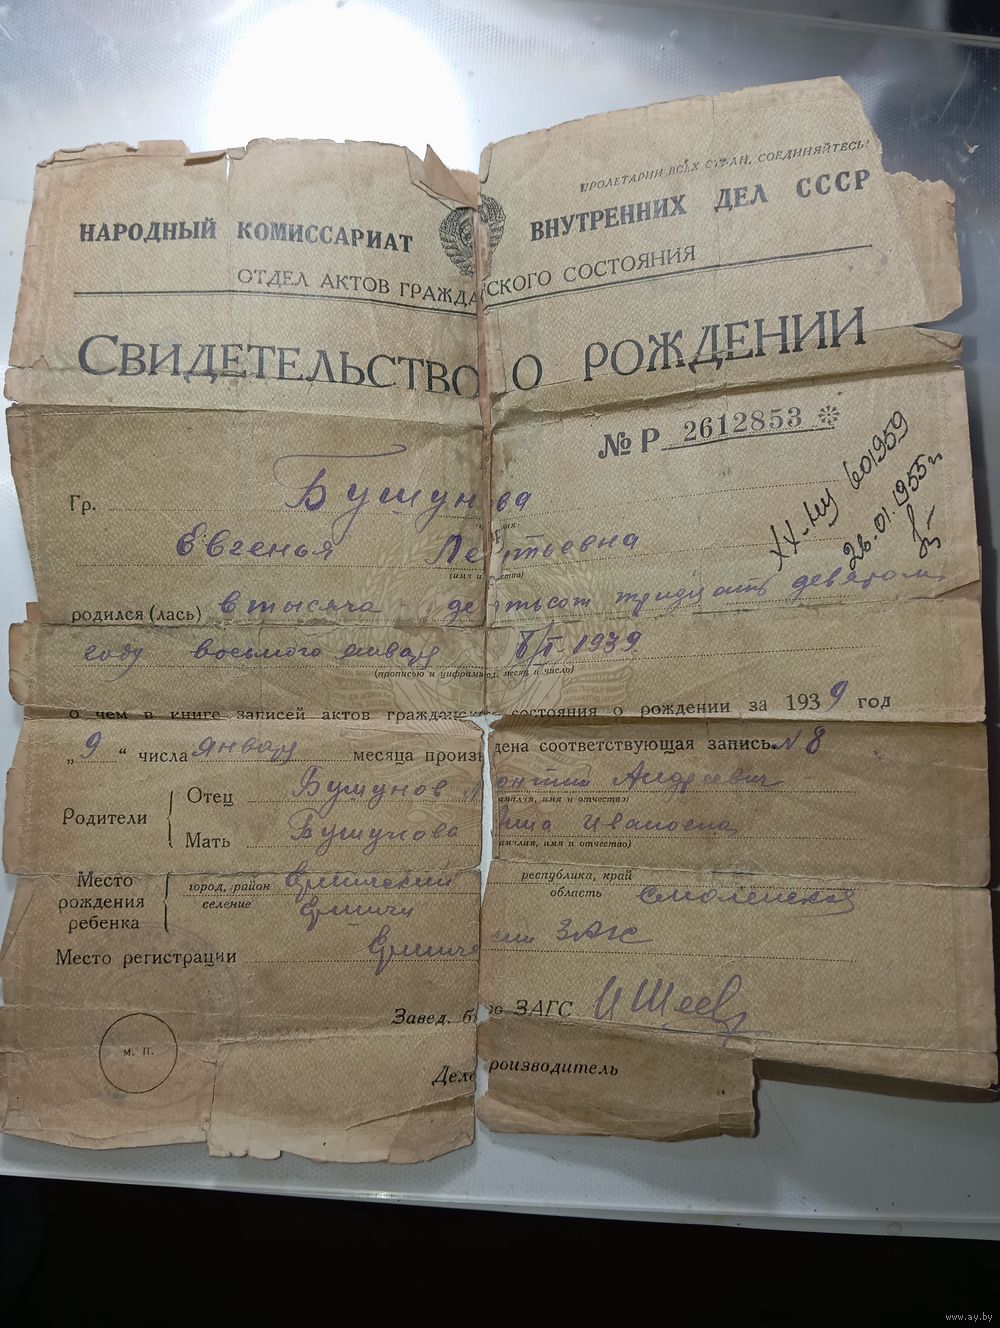 ПРОЛЕТАРИИ ВСЕХ СТРАН, СОЕДИНЯЙТЕСЬ!
НАРОДНЫЙ КОМИССАРИАТ ВНУТРЕННИХ ДЕЛ СССР
ОТДЕЛ АКТОВ ГРАЖДАНСКОГО СОСТОЯНИЯ
СВИДЕТЕЛЬСТВО О РОЖДЕНИИ
№ Р 2612853
601959
26.01.1955 г
Гр. Бушунова
Евгенья Леонтьевна
(имя и отчество)
родился (лась) в тысяча девятьсот тридцать девятом
году восьмого января 8/I-1939.
(прописью и цифрами год, месяц и число)
о чем в книге записей актов гражданского состояния о рождении за 1939 год
„9“ числа января месяца произведена соответствующая запись N 8
Родители
Отец Бушунов Леонтий Андреевич
(фамилия, имя и отчество)
Мать Бушунова Ивановна
(фамилия, имя и отчество)
Место рождения ребенка
город, район Ершический
селение Ершичи
республика, край
область Смоленская
Место регистрации Ершический ЗАГС
Завед. бюро ЗАГС
Делопроизводитель
М. П.
www.ay.by